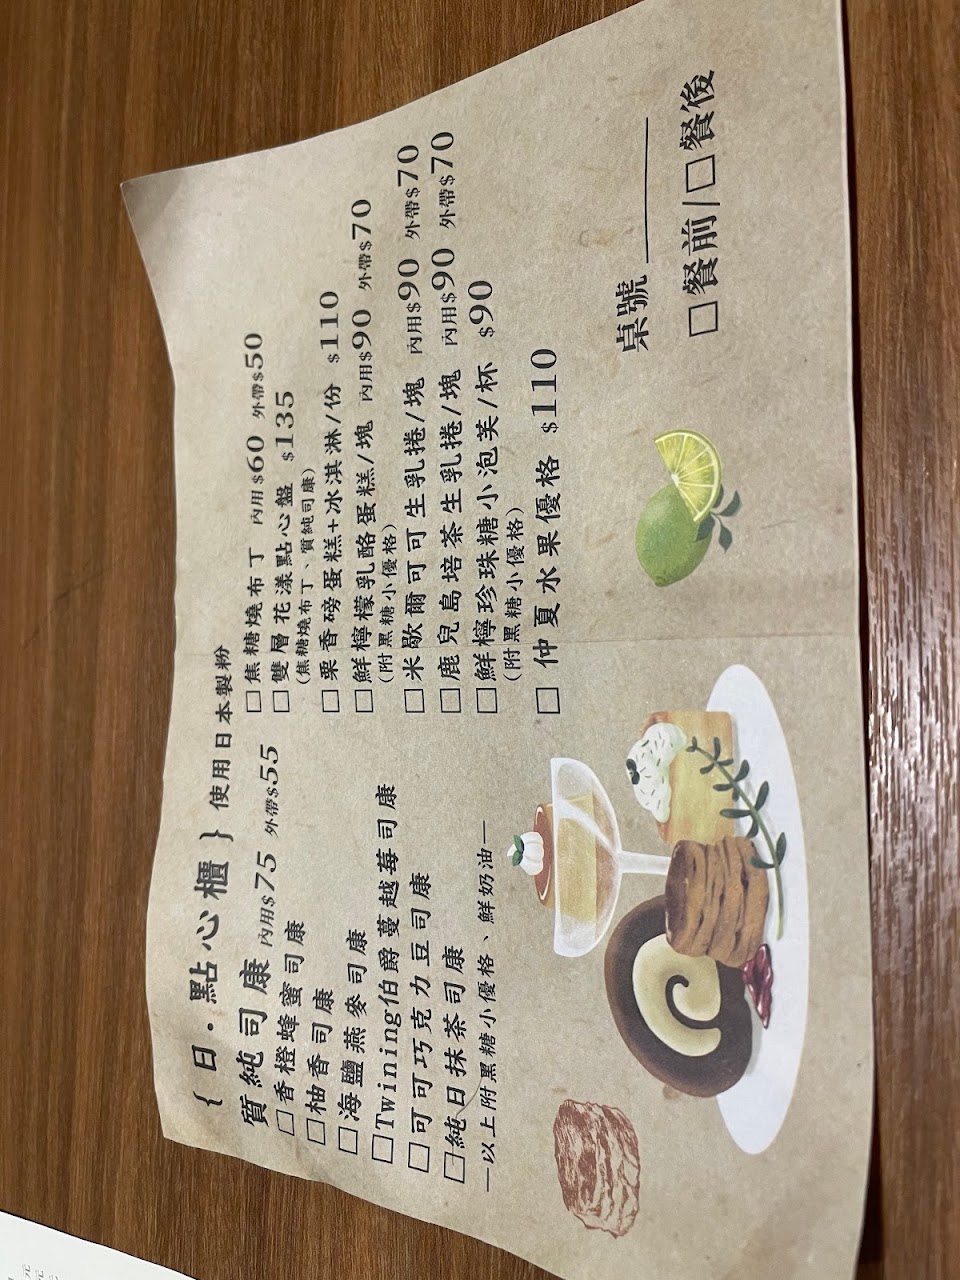 { 日・點心櫃 } 使用日本製粉
質純司康 內用$75 外帶$55
□ 香橙蜂蜜司康
□ 柚香司康
□ 海鹽燕麥司康
□ Twining伯爵蔓越莓司康
□ 可可巧克力豆司康
□ 純日抹茶司康
—以上附黑糖小優格、鮮奶油—
□ 焦糖燒布丁 內用$60 外帶$50
□ 雙層花漾點心盤 $135
(焦糖燒布丁、質純司康)
□ 栗香磅蛋糕+冰淇淋/份 $110
□ 鮮檸檬乳酪蛋糕/塊 內用$90 外帶$70
(附黑糖小優格)
□ 米歇爾可可生乳捲/塊 內用$90 外帶$70
□ 鹿兒島培茶生乳捲/塊 內用$90 外帶$70
□ 鮮檸珍珠糖小泡芙/杯 $90
(附黑糖小優格)
□ 仲夏水果優格 $110
桌號______
□餐前|□餐後